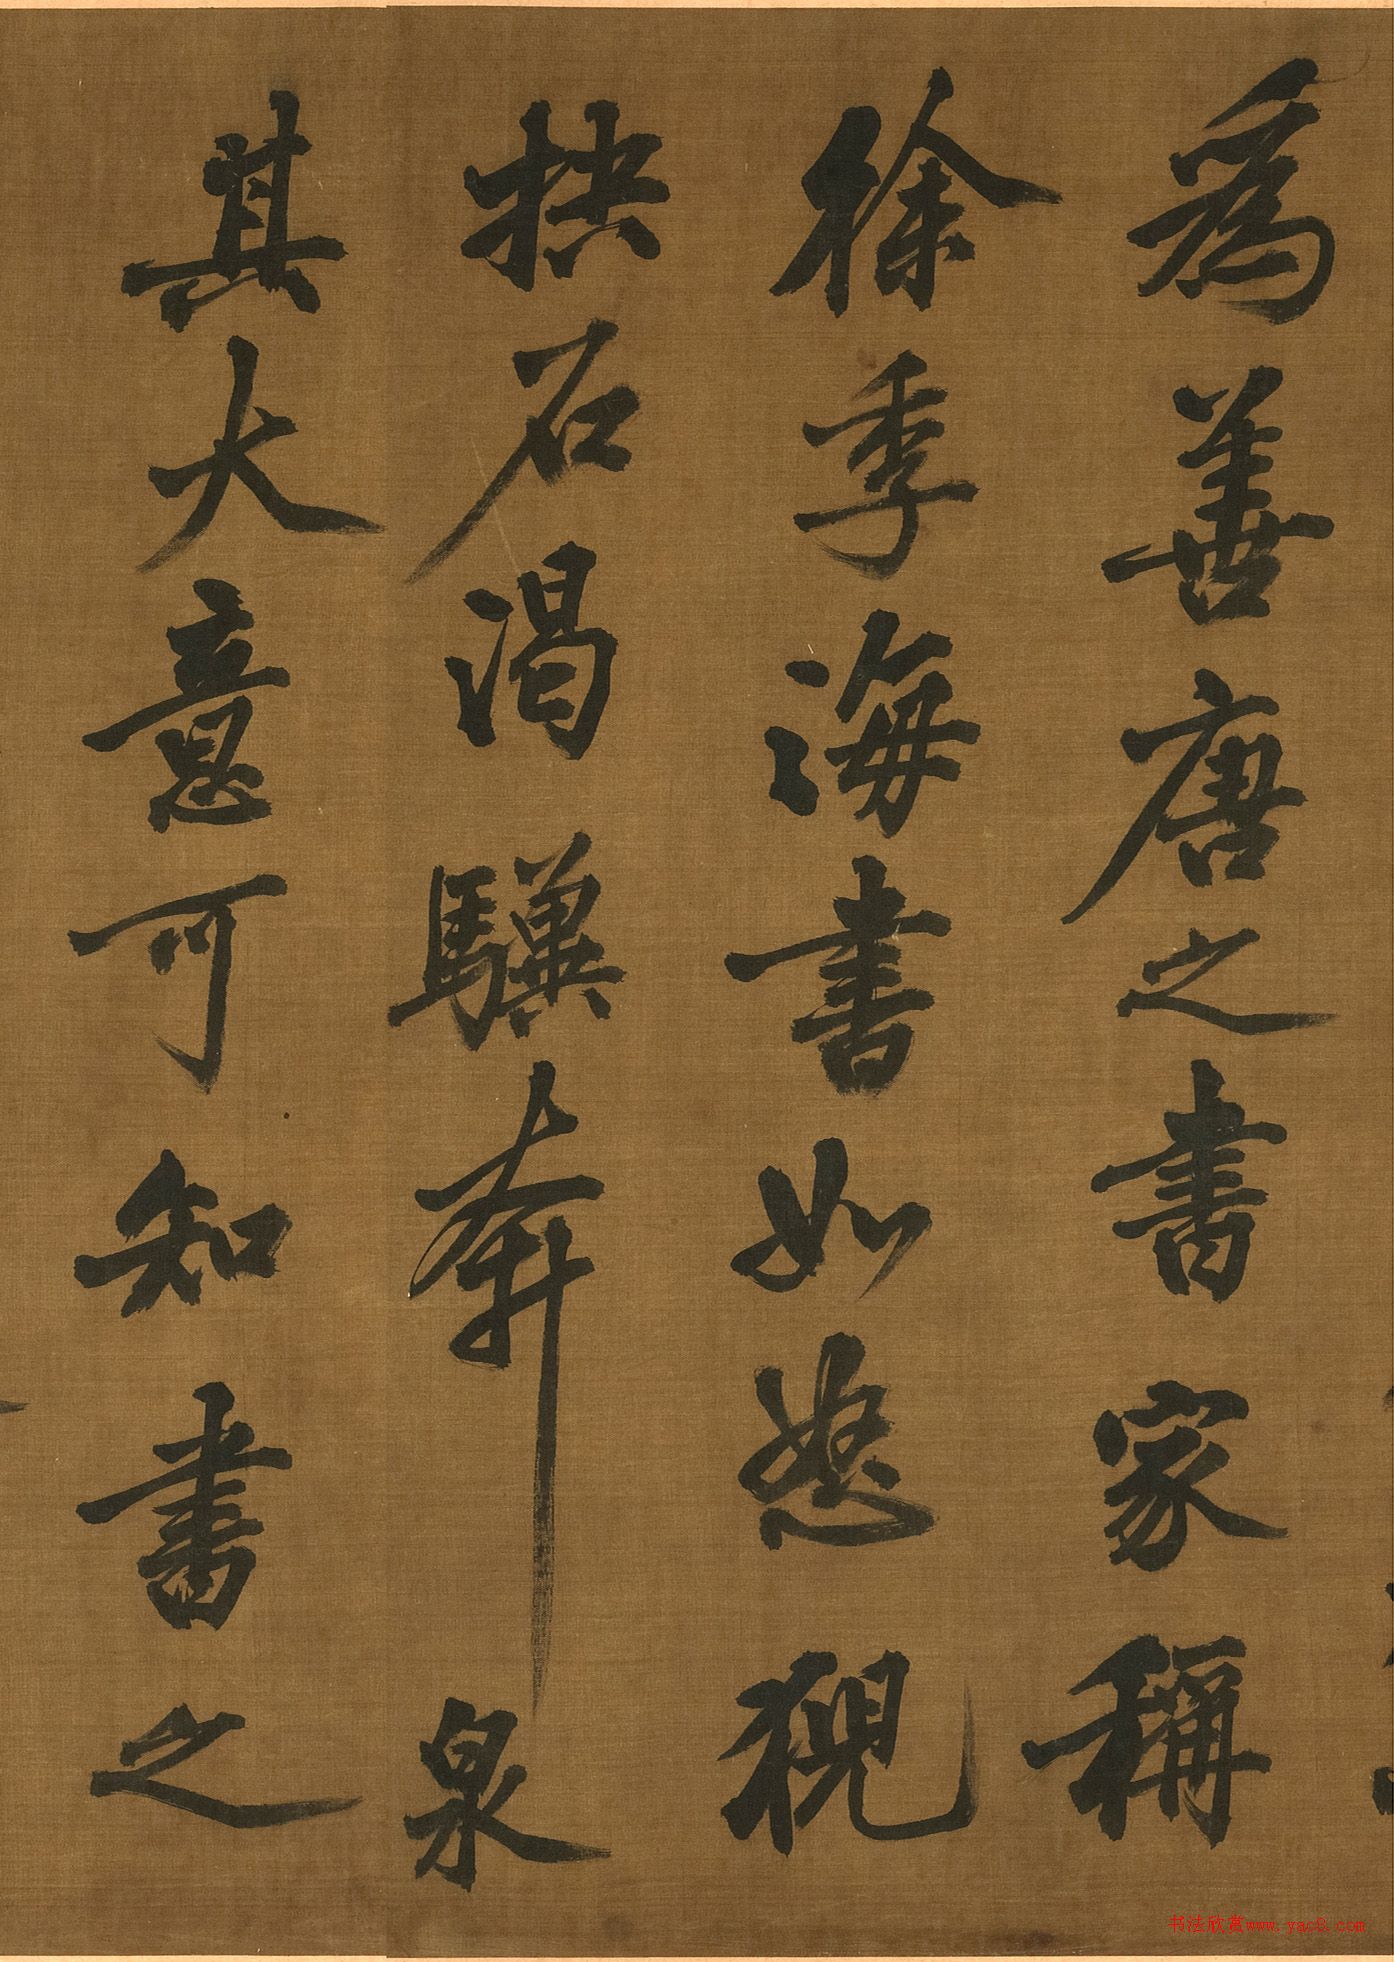 為善唐之書家稱
徐季海書如怒猊
抉石渴驥奔泉
其大意可知書之
书法欣赏www.yac8.com